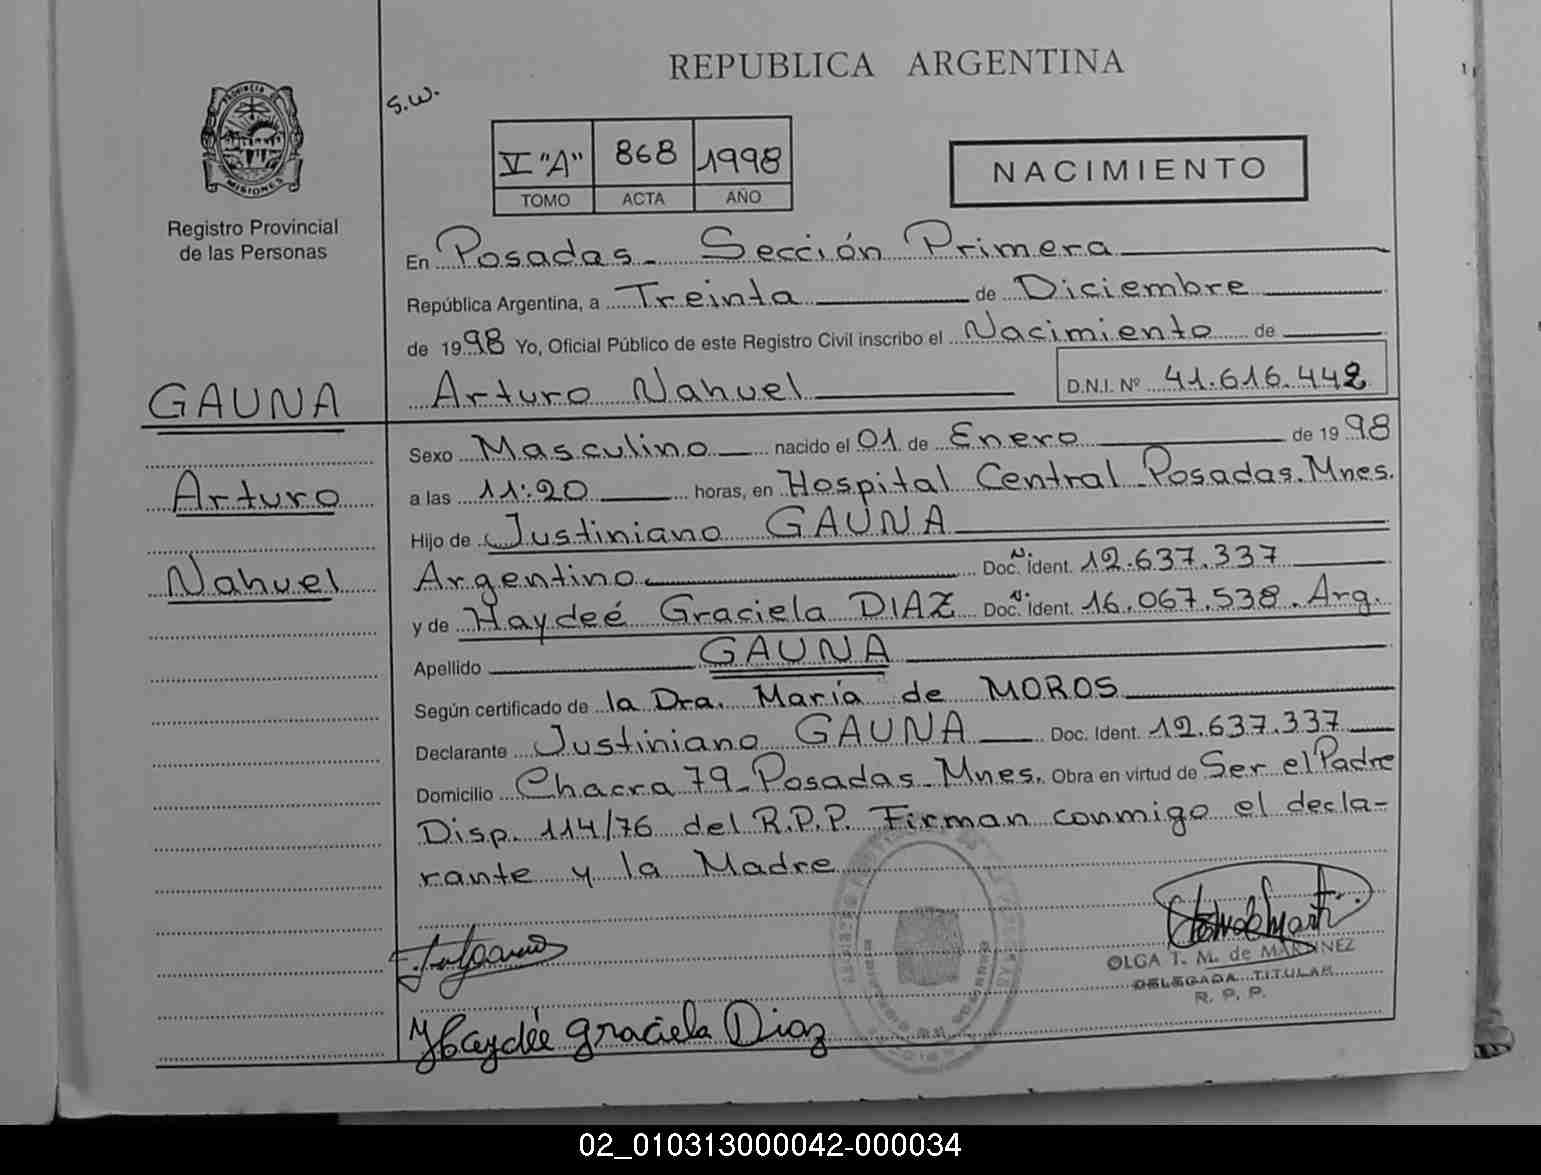 REPUBLICA ARGENTINA
S.W.
PROVINCIA DE
MISIONES
Registro Provincial
de las Personas
V "A" 868 1998
TOMO ACTA AÑO
NACIMIENTO
En Posadas - Sección Primera
República Argentina, a Treinta de Diciembre
de 1998 Yo, Oficial Público de este Registro Civil inscribo el Nacimiento de
GAUNA
Arturo Nahuel D.N.I. Nº 41.616.442
Sexo Masculino nacido el 01 de Enero de 1998
Arturo
a las 11:20 horas, en Hospital Central Posadas. Mnes.
Hijo de Justiniano GAUNA
Nahuel
Argentino Doc. N. Ident. 12.637.337
y de Haydeé Graciela DIAZ Doc. N. Ident. 16.067.538. Arg.
Apellido GAUNA
Según certificado de la Dra. María de MOROS
Declarante Justiniano GAUNA Doc. Ident. 12.637.337
Domicilio Chacra 79 - Posadas - Mnes. Obra en virtud de Ser el Padre
Disp. 114/76 del R.P.P. Firman conmigo el decla-
rante y la Madre
OLGA T. M. de MARTINEZ
DELEGADA TITULAR
R. P. P.
Haydée Graciela Diaz
02_010313000042-000034